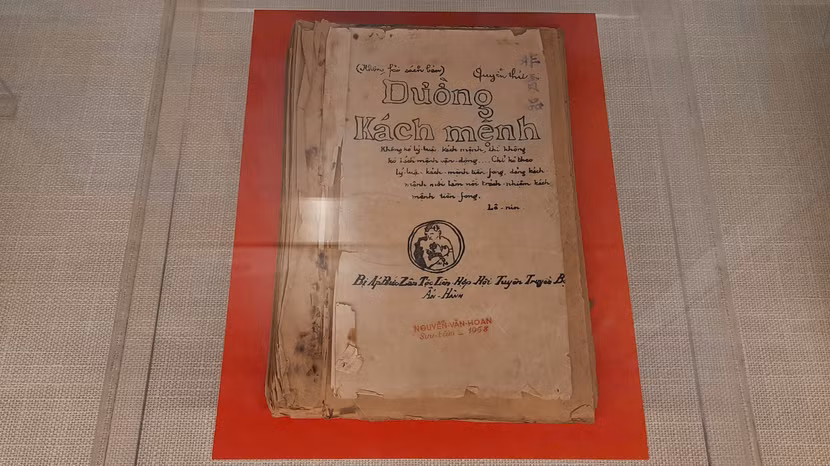 (Không fải sách bán) Quyển thứ
非賣品
Dường
Kách mệnh
Không có lý luận kách mệnh, thì không
có kách mệnh vận-động... Chỉ có theo
lý luận kách-mệnh tiền fong, đảng kách-
mệnh mới làm nổi trách nhiệm kách
mệnh tiền fong.
Lê-nin
Bị Áp Bức Zân Tộc Liên Hợp Hội Tuyên Truyền Bộ
Ấn-Hành
NGUYỄN-VĂN-HOAN
Sưu-tầm - 1958